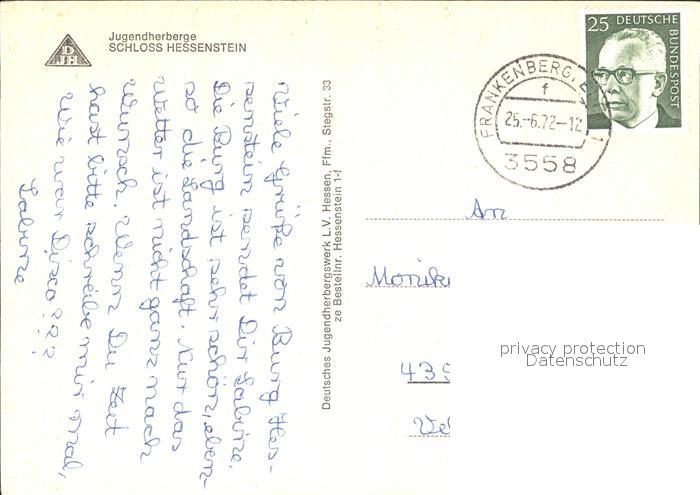 Jugendherberge
SCHLOSS HESSENSTEIN
DJH
Viele Grüße von Burg Hes-
senstein sendet Dir Sabine.
Die Burg ist sehr schön, eben-
so die Landschaft. Nur das
Wetter ist nicht ganz nach
Wunsch. Wenn Du Zeit
hast bitte schreibe mir mal,
wie war Disco???
Sabine
Deutsches Jugendherbergswerk L.V. Hessen, Ffm., Stegstr. 33
ze Bestellnr. Hessenstein 1-f
25 DEUTSCHE
BUNDESPOST
FRANKENBERG, E
1
f
25.-6.72-12
3558
An
Monik
435
Vel
privacy protection
Datenschutz